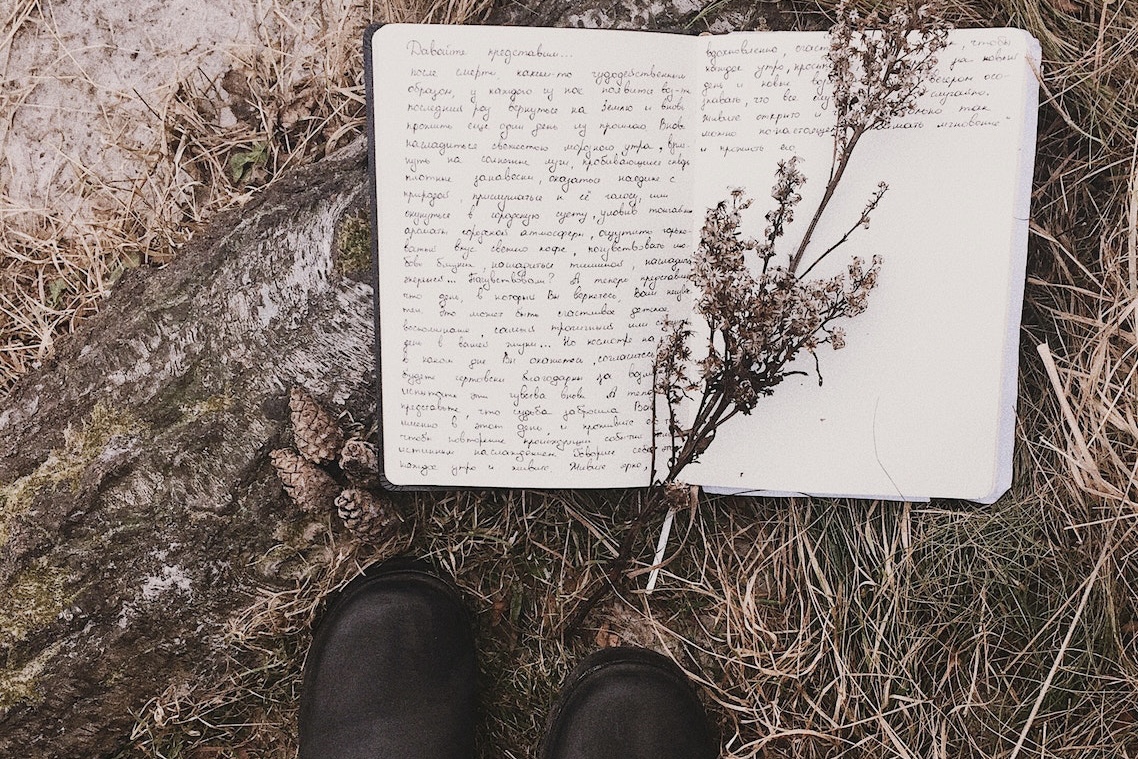 Давайте представим...
после смерти, каким-то чудодейственным
образом, у каждого из нас появится
последний раз вернуться на Землю и вновь
прожить еще один день из прошлого. Вновь
насладиться свежестью морозного утра,
путь на солнечные лучи, пробивающиеся сквозь
плотные занавески, оказаться наедине с
природой, прислушаться к её голосу, или
окунуться в городскую суету, уловив
аромат городской атмосферы, ощутить
вкус свежего кофе, почувствовать
близких, насладиться тишиной,
Почувствовали? А теперь представим
что день, в который Вы вернетесь, Вам
Это может быть счастливое детское
воспоминание, самый трагичный или
день в вашей жизни... Но несмотря на
в каком дне Вы окажетесь, согласитесь
будете чертовски благодарны за
испытать эти чувства вновь. А
представьте, что судьба забросила Вас
именно в этот день и проживите
чтобы повторение происходящих событий
истинным наслаждением. Говорите себе
каждое утро и живите. Живите ярко,
вдохновленно, чтобы
каждое утро, на новый
день и новы вечером
что все
живите открыто и только так
можно по-настоящему мгновение"
и прожить его.